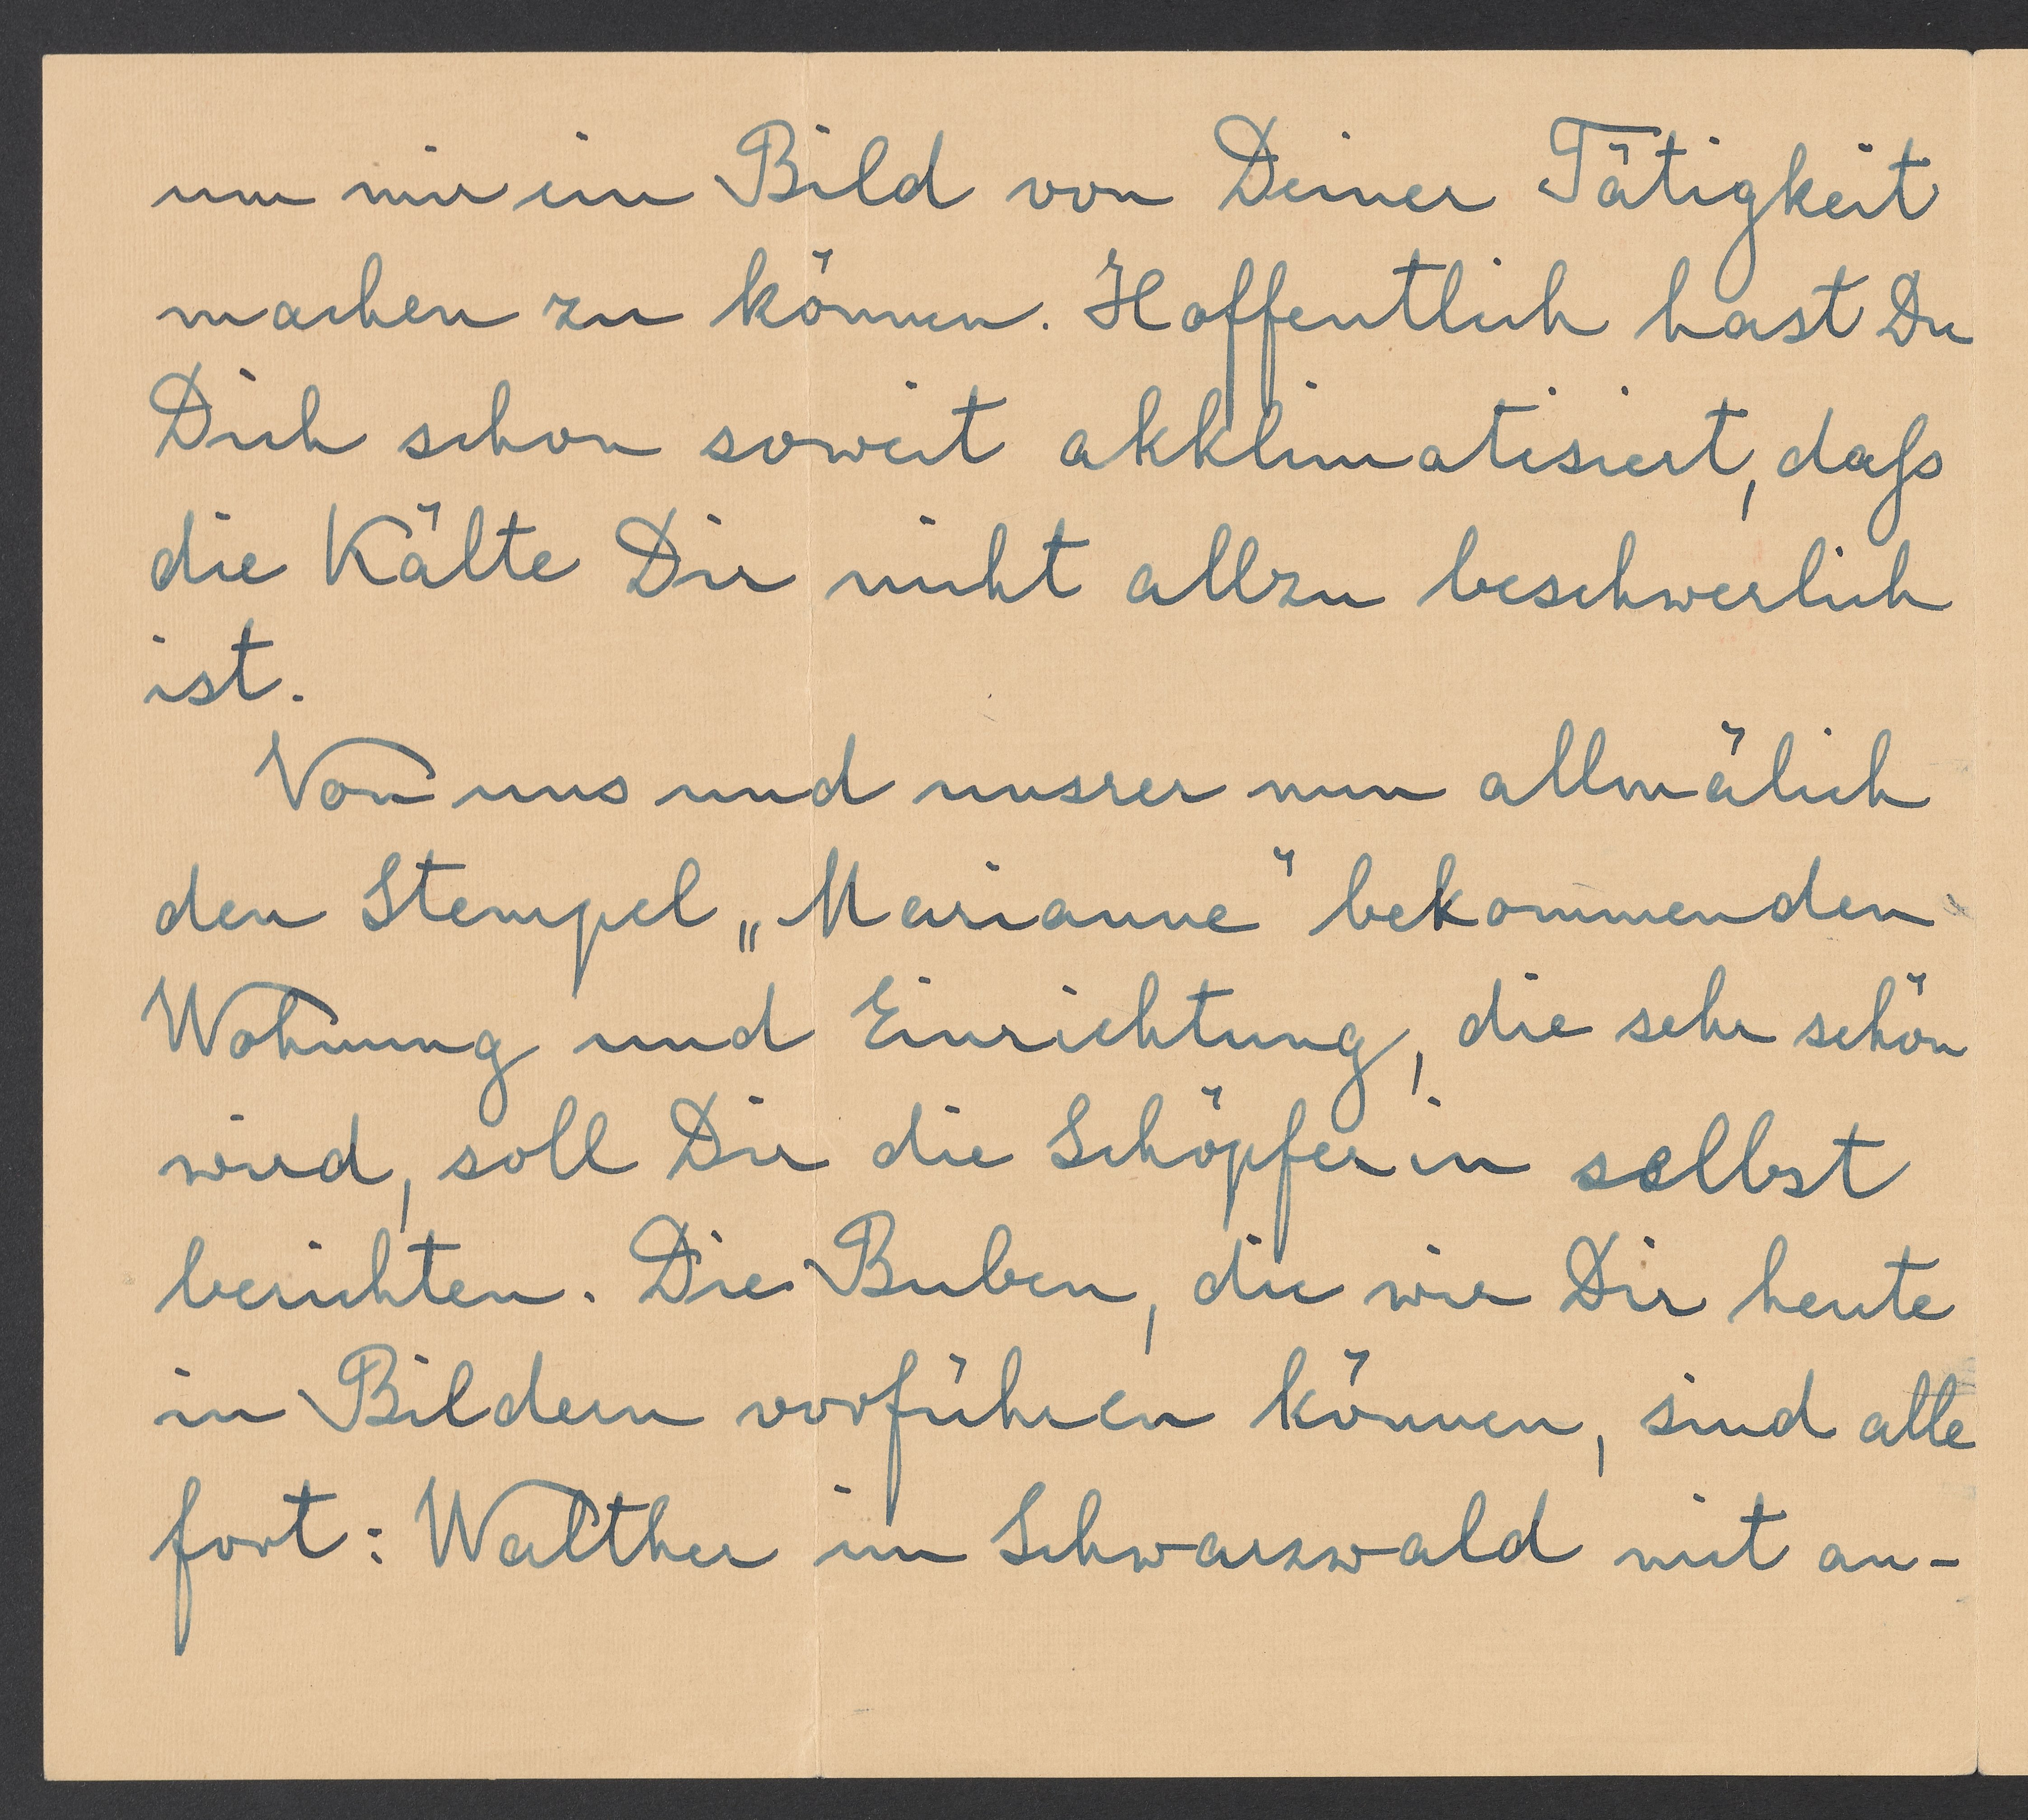 um mir ein Bild von Deiner Tätigkeit
machen zu können. Hoffentlich hast Du
Dich schon soweit akklimatisiert, daß
die Kälte Dir nicht allzu beschwerlich
ist.
Von uns und unsrer nun allmälich
den Stempel „Marianne" bekommenden
Wohnung und Einrichtung, die sehr schön
wird, soll Dir die Schöpferin selbst
berichten. Die Buben, die wir Dir heute
in Bildern vorführen können, sind alle
fort: Walther im Schwarzwald mit an-